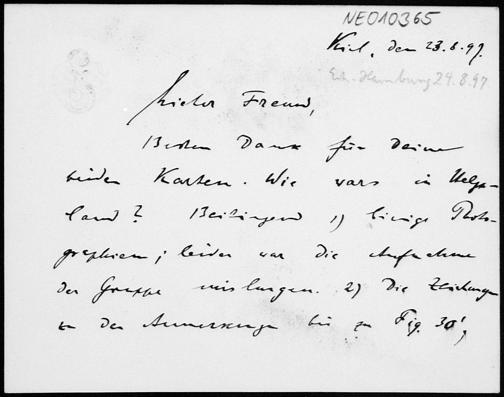 NEO10365
Kiel, den 23.8.97.
Eh. Hamburg 24.8.97
Lieber Freund,
Besten Dank für Deine
beiden Karten. Wie wars in Helgo-
land? Beiliegend 1) einige Photo-
graphien; leider war die Aufnahme
der Gruppe mislungen. 2) Die Zeichnungen
zu den Anmerkungen bis zu Fig. 30',